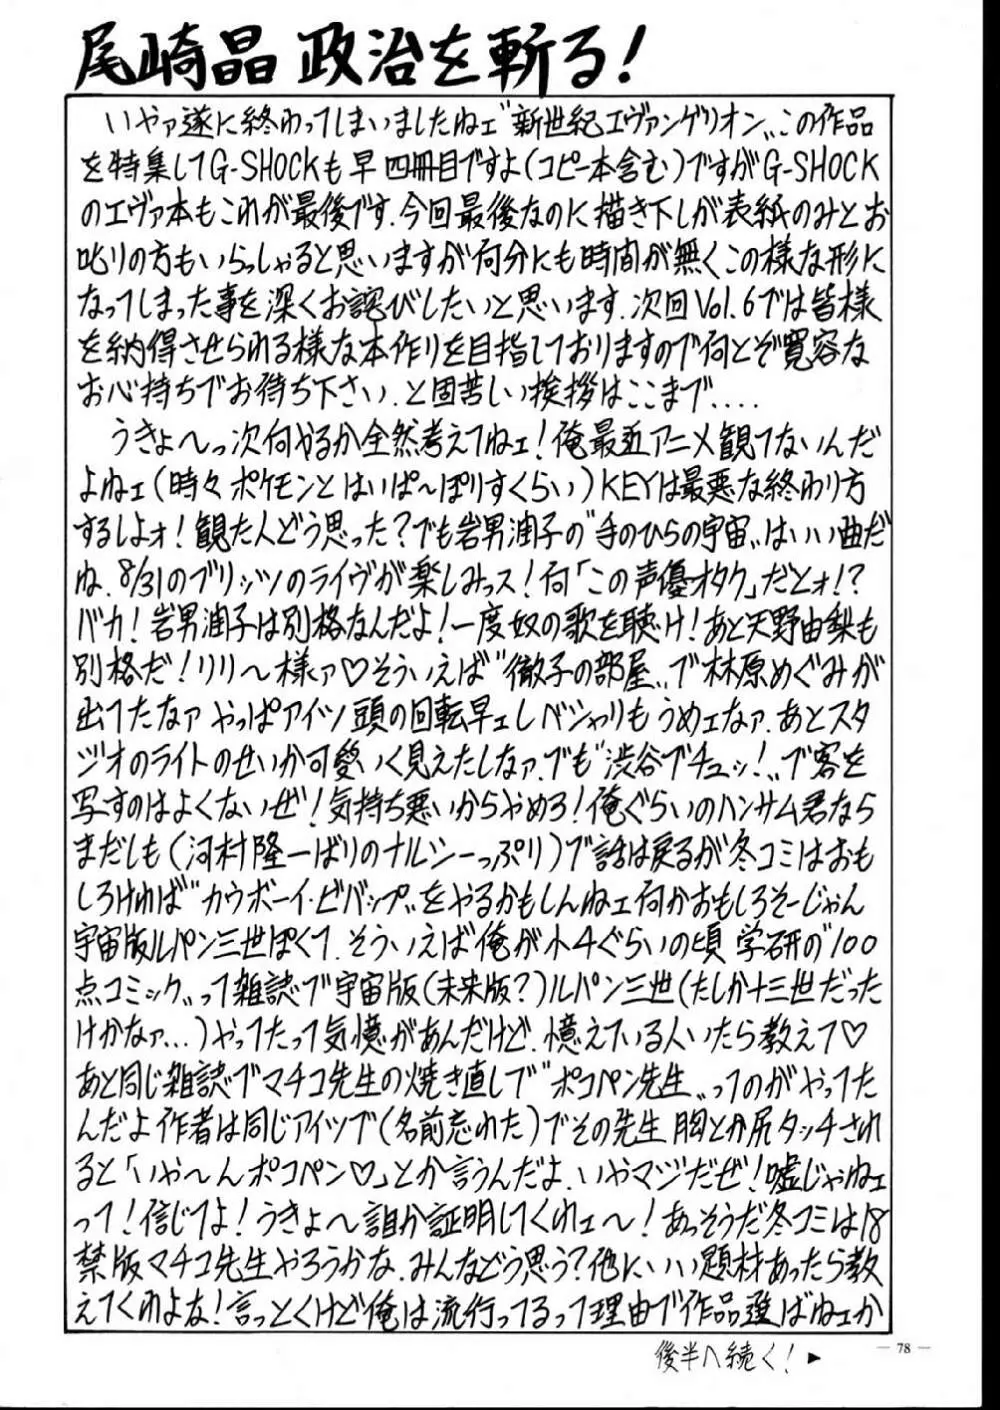 尾崎晶 政治を斬る!
いやァ遂に終わってしまいましたねェ〝新世紀エヴァンゲリオン〟この作品
を特集してG-SHOCKも早四冊目ですよ(コピー本含む)ですがG-SHOCK
のエヴァ本もこれが最後です.今回最後なのに描き下しが表紙のみとお
叱りの方もいらっしゃると思いますが何分にも時間が無くこの様な形に
なってしまった事を深くお詫びしたいと思います.次回Vol.6では皆様
を納得させられる様な本作りを目指しておりますので何とぞ寛容な
お心持ちでお待ち下さい.と固苦しい挨拶はここまで....
うきょ〜っ次何やるか全然考えてねェ!俺最近アニメ観てないんだ
よねェ(時々ポケモンとはいぱ〜ぽりすくらい)KEYは最悪な終わり方
するしよォ!観た人どう思った?でも岩男潤子の〝手のひらの宇宙〟はいい曲だ
ね.8/31のブリッツのライヴが楽しみっス!何「この声優オタク」だとォ!?
バカ!岩男潤子は別格なんだよ!一度奴の歌を聴け!あと天野由梨も
別格だ!リリ〜様ァ♡そういえば〝徹子の部屋〟で林原めぐみが
出てたなァ やっぱアイツ頭の回転早ェしベシャリもうめェなァ.あとスタ
ジオのライトのせいか可愛いく見えたしなァ.でも〝渋谷でチュッ!〟で客を
写すのはよくないぜ!気持ち悪いからやめろ!俺ぐらいのハンサム君なら
まだしも(河村隆一ばりのナルシーっぷり)で話は戻るが冬コミはおも
しろければ〝カウボーイ・ビバップ〟をやるかもしんねェ何かおもしろそーじゃん
宇宙版ルパン三世ぽくて.そういえば俺が小4ぐらいの頃 学研の〝100
点コミック〟って雑誌で宇宙版(未来版?)ルパン三世(たしか十三世だった
けかなァ...)やってたって気憶があんだけど.憶えている人いたら教えて♡
あと同じ雑誌でマチコ先生の焼き直しで〝ポコペン先生〟ってのがやってた
んだよ作者は同じアイツで(名前忘れた)でその先生 胸とか尻タッチされ
ると「いや〜んポコペン♡」とか言うんだよ.いやマジだぜ!嘘じゃねェ
って!信じてよ!うきょ〜誰か証明してくれェ〜!あっそうだ冬コミは18
禁版マチコ先生やろうかな.みんなどう思う?他にいい題材あったら教
えてくれよな!言っとくけど俺は流行ってるって理由で作品選ばねェか
後半へ続く!▶
— 78 —